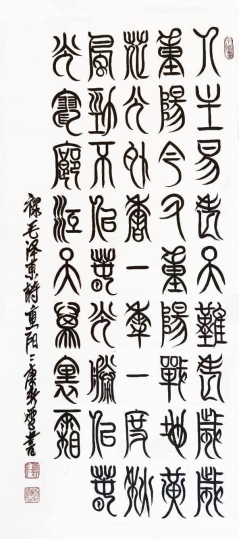 人生易老天難老歲歲
重陽今又重陽戰地黃
花分外香一年一度秋
風勁不似春光勝似春
光寥廓江天萬裏霜
錄毛泽東詩重阳